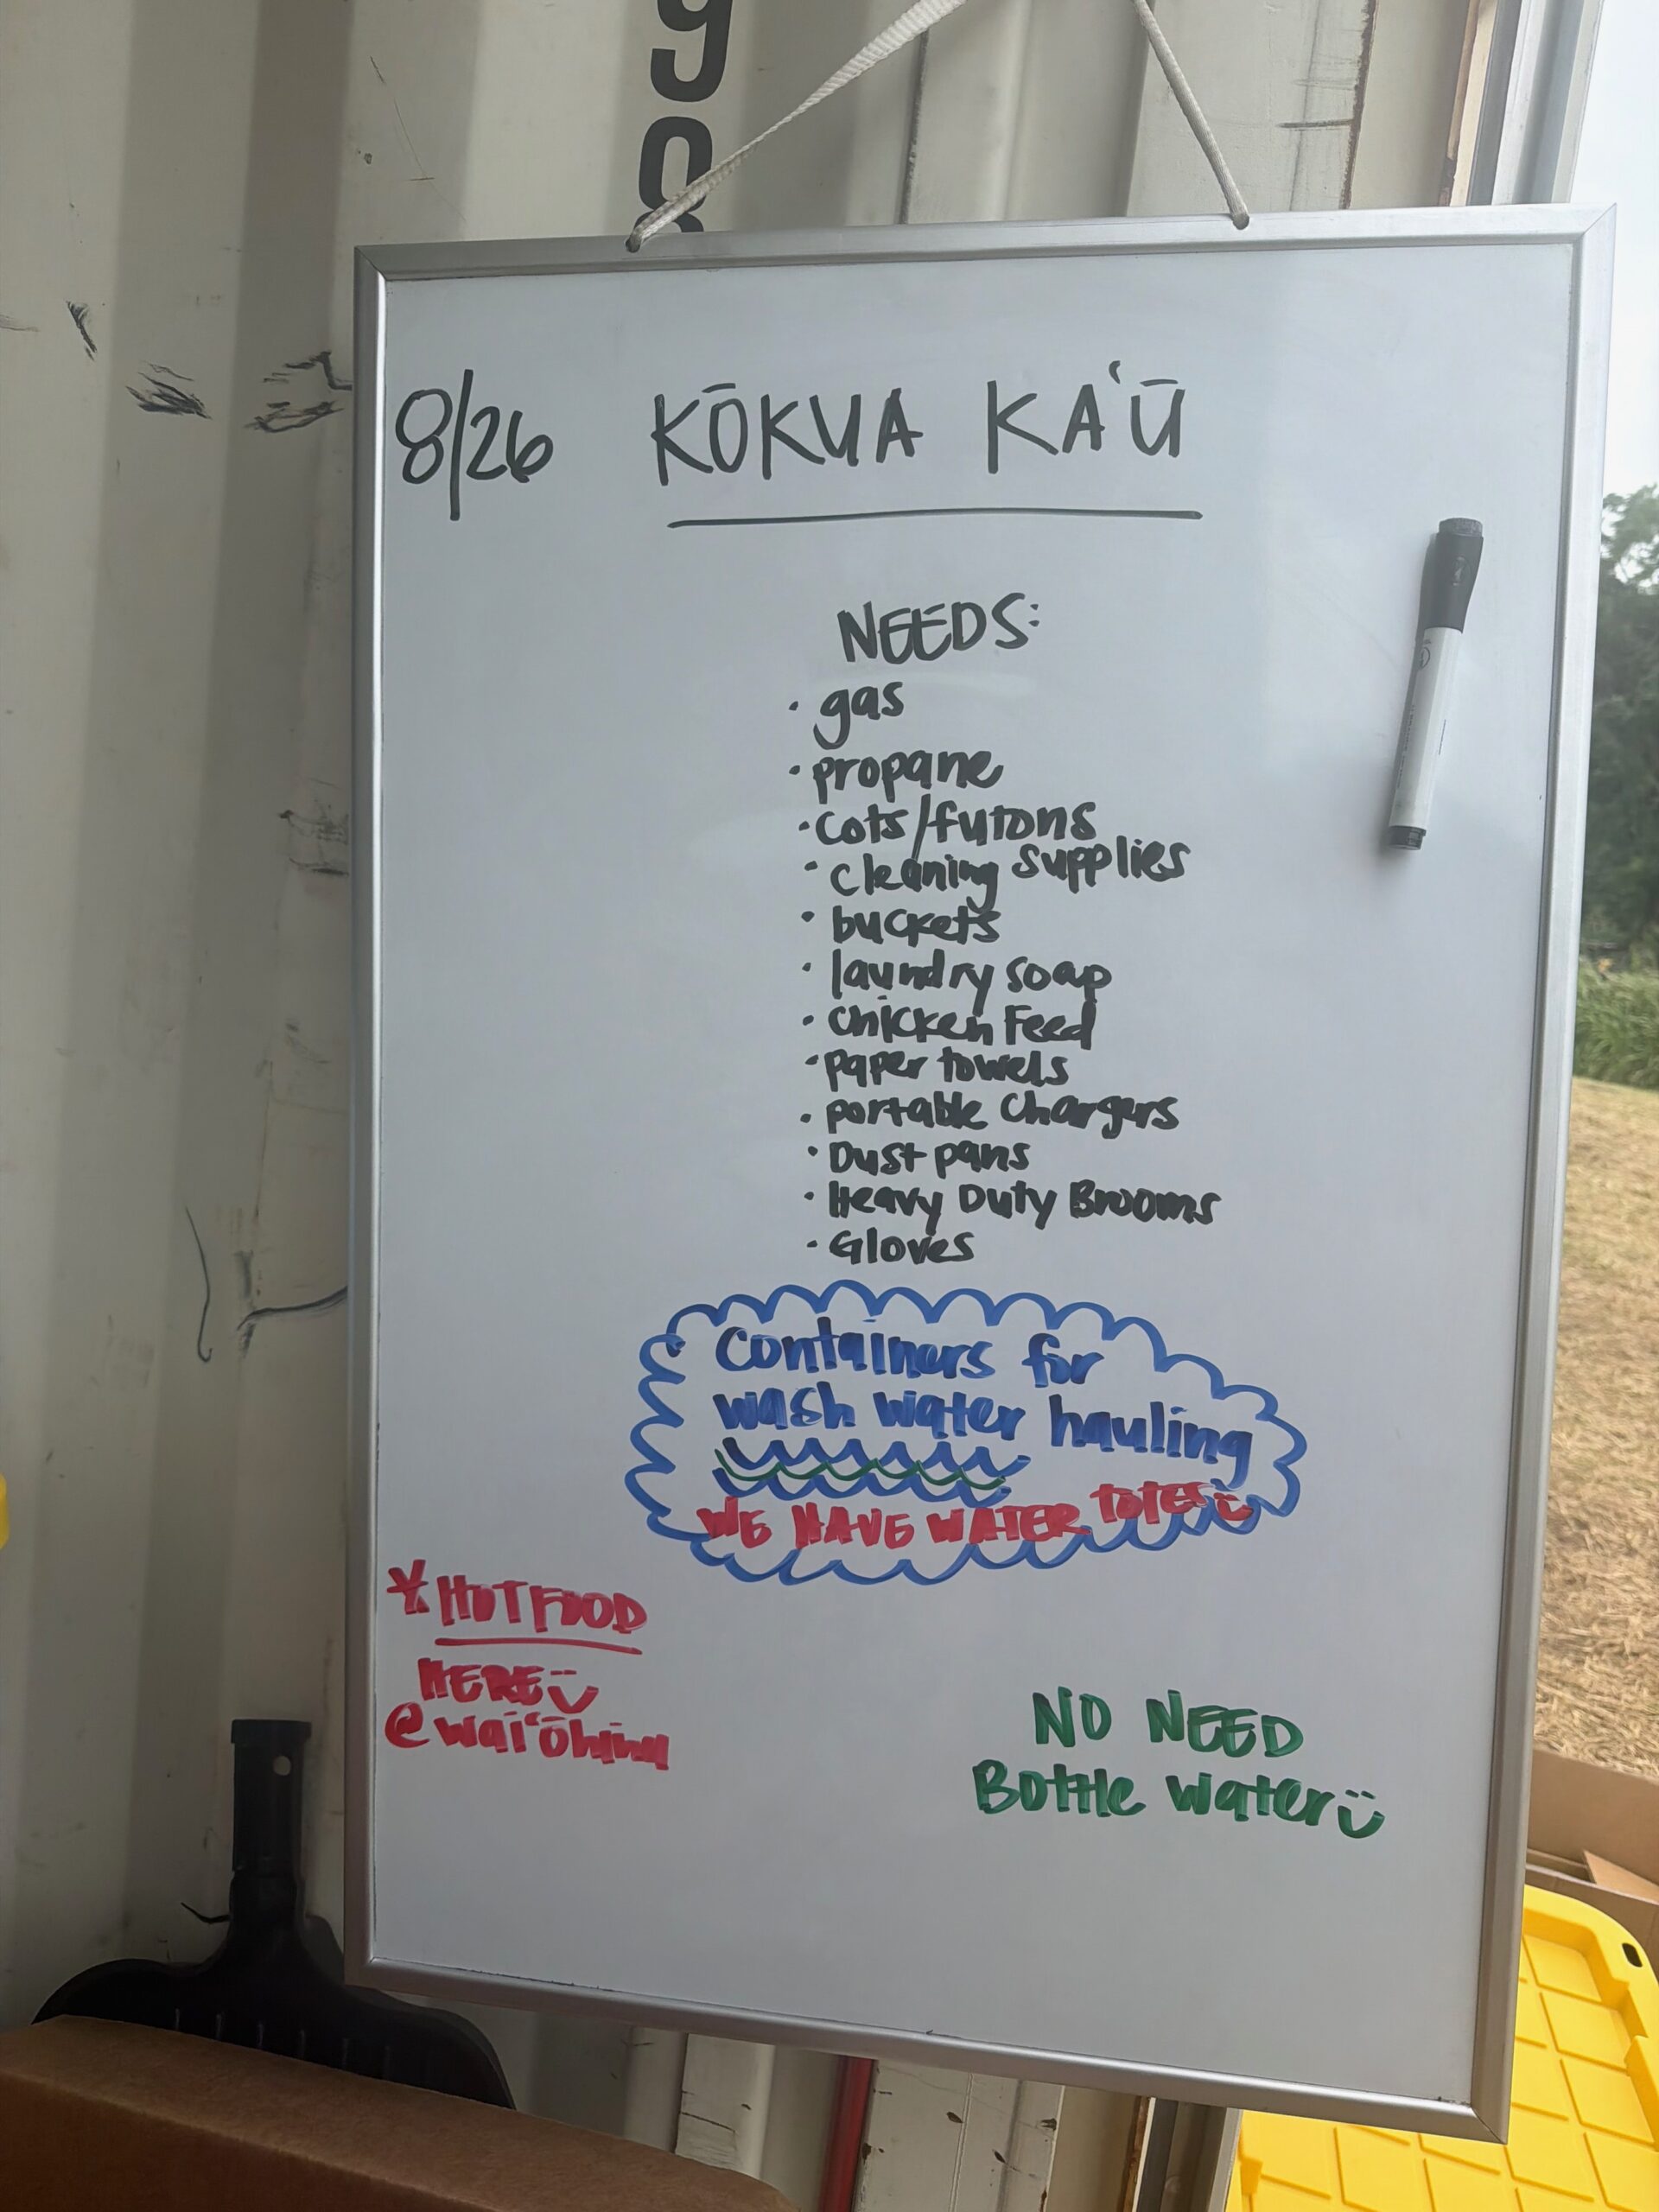 98
8/26 KŌKUA KAʻŪ
NEEDS:
· gas
· propane
· Cots/futons
· cleaning supplies
· buckets
· laundry soap
· Chicken Feed
· paper towels
· portable Chargers
· Dust pans
· Heavy Duty Brooms
· Gloves
Containers for
wash water hauling
WE HAVE WATER TOTES
* HOT FOOD
HERE
@ waiʻōhinu
NO NEED
Bottle water